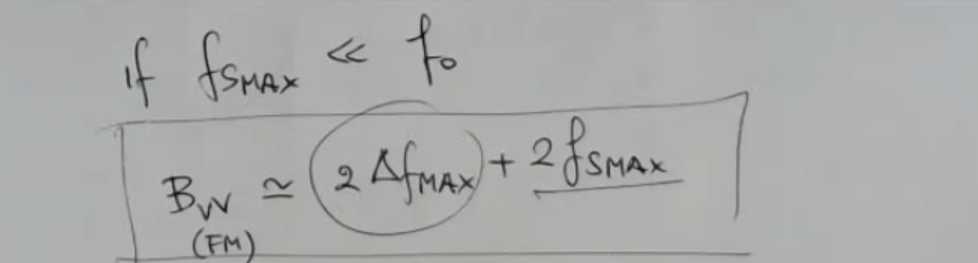 if fSMAX << fo
BW ≃ 2 ΔfMAX + 2 fSMAX
(FM)